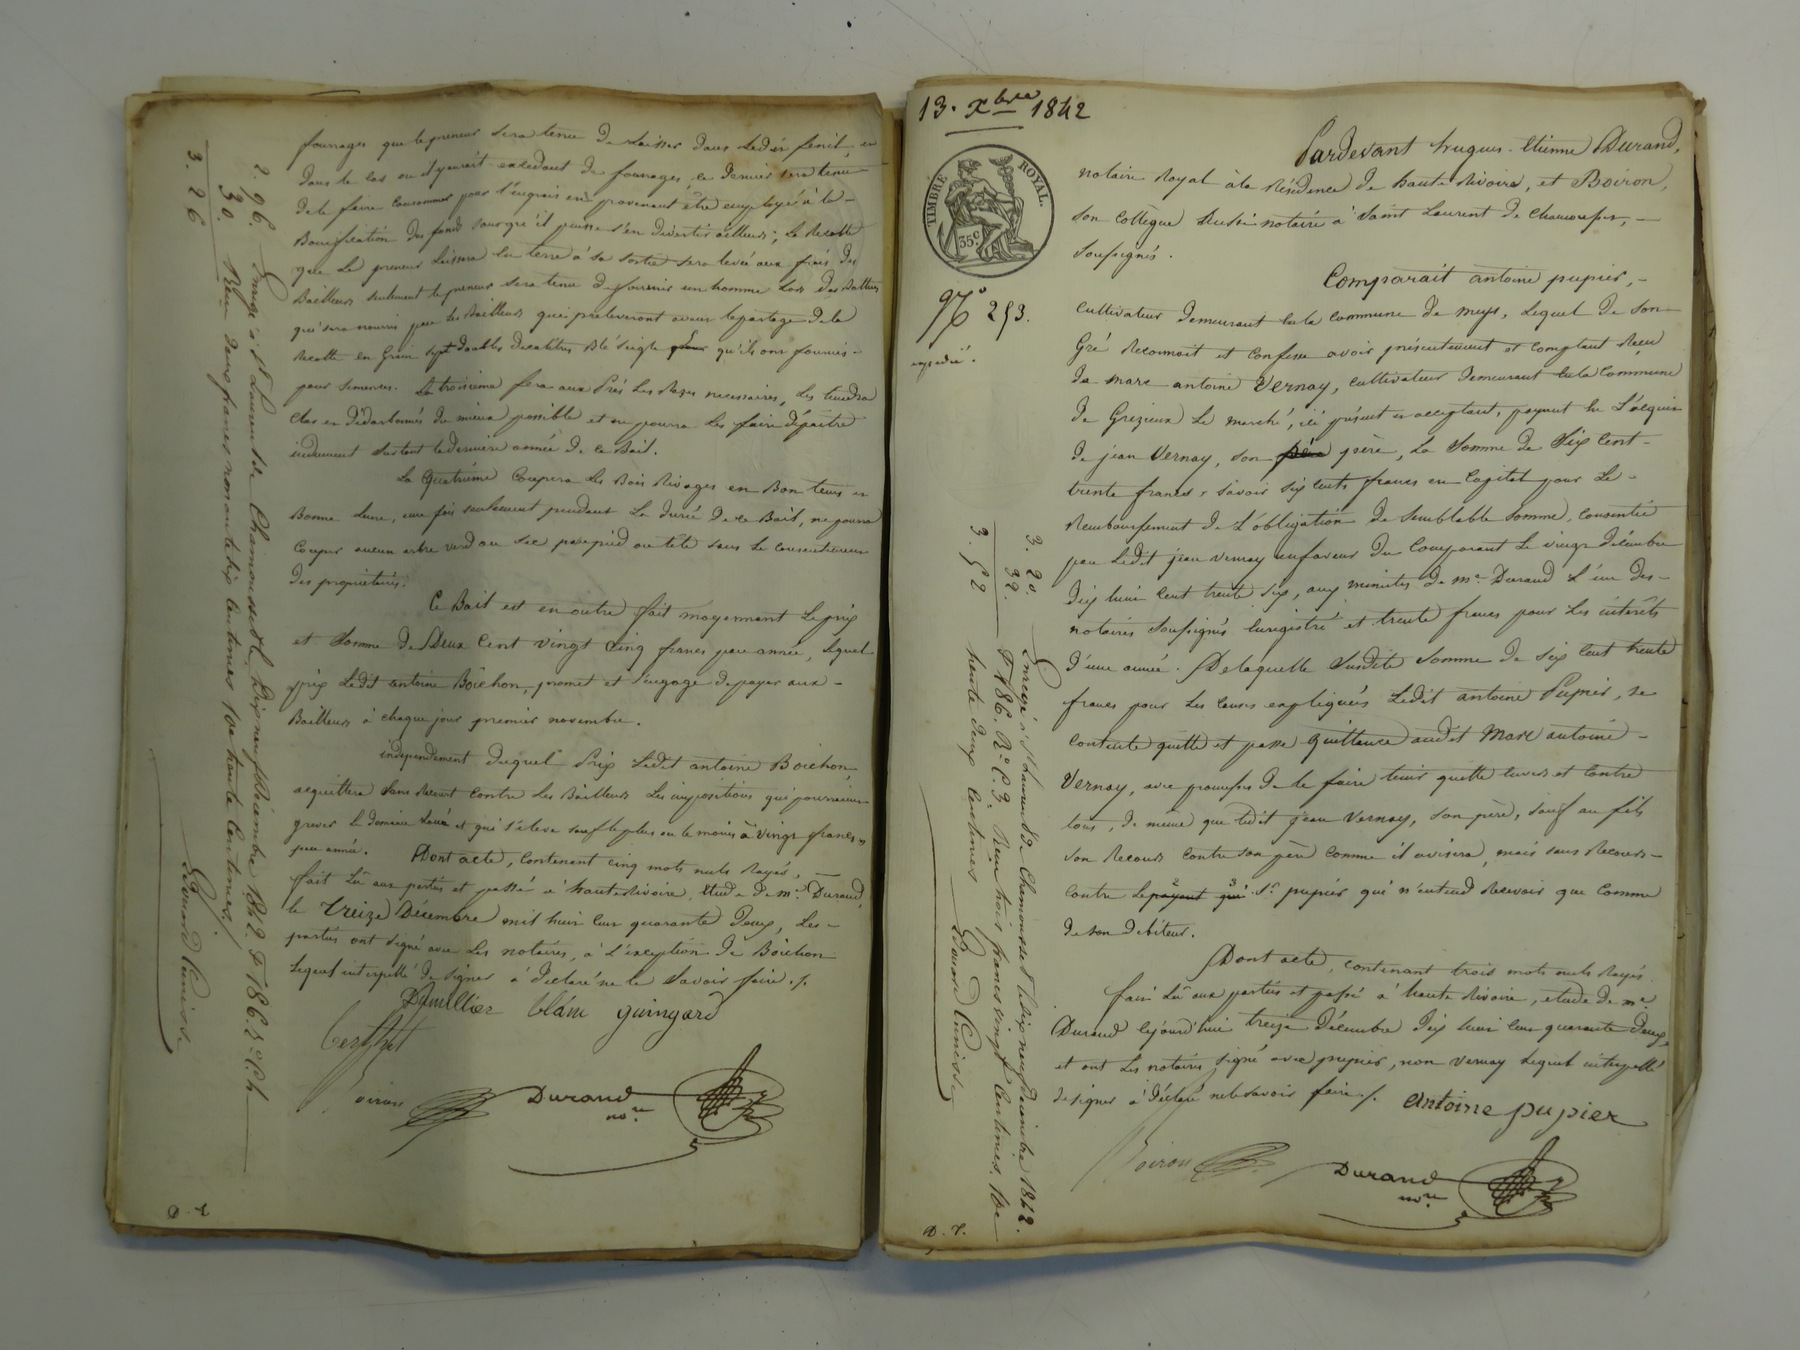 fourrages que le preneur sera tenu de laisser dans ledit fenil, et
dans le cas où il y aurait excédant de fourrages, ce dernier sera tenu
de le faire consommer pour l'engrais en provenant être employé à la
Bonification des fonds sans qu'il puisse s'en divertir ailleurs; La Récolte
que Le preneur Laissera en terre à sa sortie sera levée aux frais des
Bailleurs seulement le preneur sera tenu de fournir un homme Lors des Battus
qui sera nourri par les Bailleurs qui préleveront avant le partage de la
Récolte en Grain sept doubles décalitres Blé Seigle qu'ils ont fournis
pour semences. La troisième fera aux Prés Les Rases necessaires, Les tiendra
Clos et Détarbonnés du mieux possible et ne pourra les faire dépaître
indument surtout la dernière année de ce Bail.
La Quatrième Coupera les Bois Rivages en Bon tems et
Bonne Lune, une fois seulement pendant La durée de ce Bail, ne pourra
Couper aucun arbre verd ou sec par pied ou tête sans le consentement
des propriétaires.
Ce Bail est en outre fait moyennant Le prix
et Somme de Deux Cent vingt Cinq francs par année, Lequel
prix Ledit antoine Boichon, promet et s'engage de payer aux
Bailleurs à chaque jour premier novembre.
independement duquel Prix Ledit antoine Boichon
acquittera sans Recours contre Les Bailleurs Les impositions qui pourraient
grever le domaine Loué et qui s'élève sauf le plus ou le moins à vingt francs
par année. Dont acte, Contenant cinq mots nuls Rayés,
fait Lû aux parties et passé à haute Rivoire, Etude de me. Durand,
le treize Décembre mil huit cent quarante deux, Les
parties ont signé avec Les notaires, à L'exception de Boichon
Lequel interpellé de signer a déclaré ne le Savoir faire./.
blanc guingard
Berthet
Boiron Durand
nore.
D. 7.
2. 96. Enregé à St Laurent de Chamousset Le dix neuf Décembre 1842. fo 186 Ro C. 4.
30. Reçu deux francs nonante six Centimes 10e trente Centimes./.
3. 26
13. Xbre 1842
TIMBRE ROYAL.
35 c
No 253.
expedié.
Pardevant hugues-Etienne Durand,
notaire Royal à la Résidence de haute Rivoire, et Boiron,
son Collègue Aussi notaire à Saint Laurent de Chamousset,
Soussignés.
Comparait antoine pupier,
cultivateur demeurant en la commune de meys, Lequel de son
Gré Reconnoit et confesse avoir présentement et comptant Reçu
de marc antoine Vernay, cultivateur demeurant en la Commune
de Grézieux Le marché, ici présent et acceptant, payant en L'acquit
de jean Vernay, son père père, La Somme de Six Cent
trente francs, savoir six cents francs en Capital pour Le
Remboursement de L'obligation de Semblable Somme, consentie
par Ledit jean vernay en faveur du Comparant Le vingt décembre
dix huit cent trente six, aux minutes de me. Durand L'un des
notaires Soussignés Enregistré et trente francs pour Les intérêts
d'une année. De laquelle Susdite Somme de Six Cent trente
francs pour Les causes expliquées Ledit antoine Pupier, se
contente quitte et passe Quittance audit Marc antoine
Vernay, avec promesse de le faire tenir quitte envers et contre
tous, de même que ledit jean Vernay, son père, sauf au fils
son Recours contre son père comme il avisera, mais sans Recours
contre Le payant qui Sr. pupier qui n'entend Recevoir que comme
de son débiteur.
Dont acte, contenant trois mots nuls Rayés.
fait Lû aux parties et passé à haute Rivoire, etude de me
Durand cejourd'hui treize Décembre dix huit cent quarante deux,
et ont Les notaires signé avec pupier, non vernay Lequel interpellé
de signer a déclaré ne le savoir faire./. antoine pupier
Boiron Durand
nore
D. 7.
3. 20. Enregé à St Laurent de Chamousset Le dix neuf Décembre 1842.
32. fo 186. Ro C. 3. Reçu trois francs vingt Centimes, 10e
3. 52 trente deux Centimes